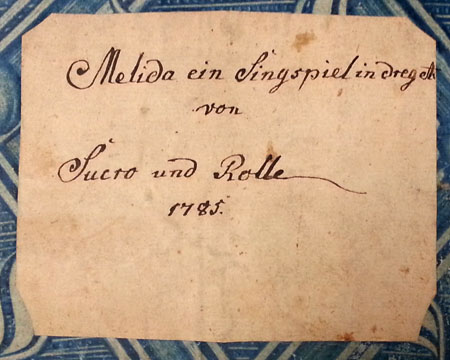 Melida ein Singspiel in drey Ak
von
Sucro und Rolle
1785.